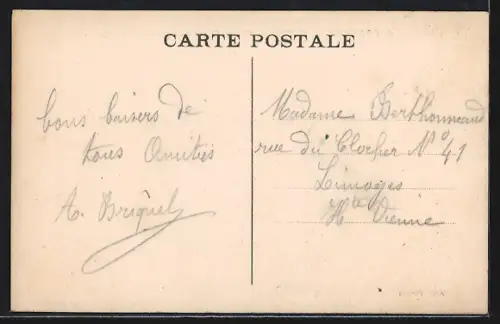 CARTE POSTALE
bons baisers de
tous Amitiés
A. Briquet
Madame Berthommeaud
rue du Clocher N° 41
Limoges
Hte Vienne